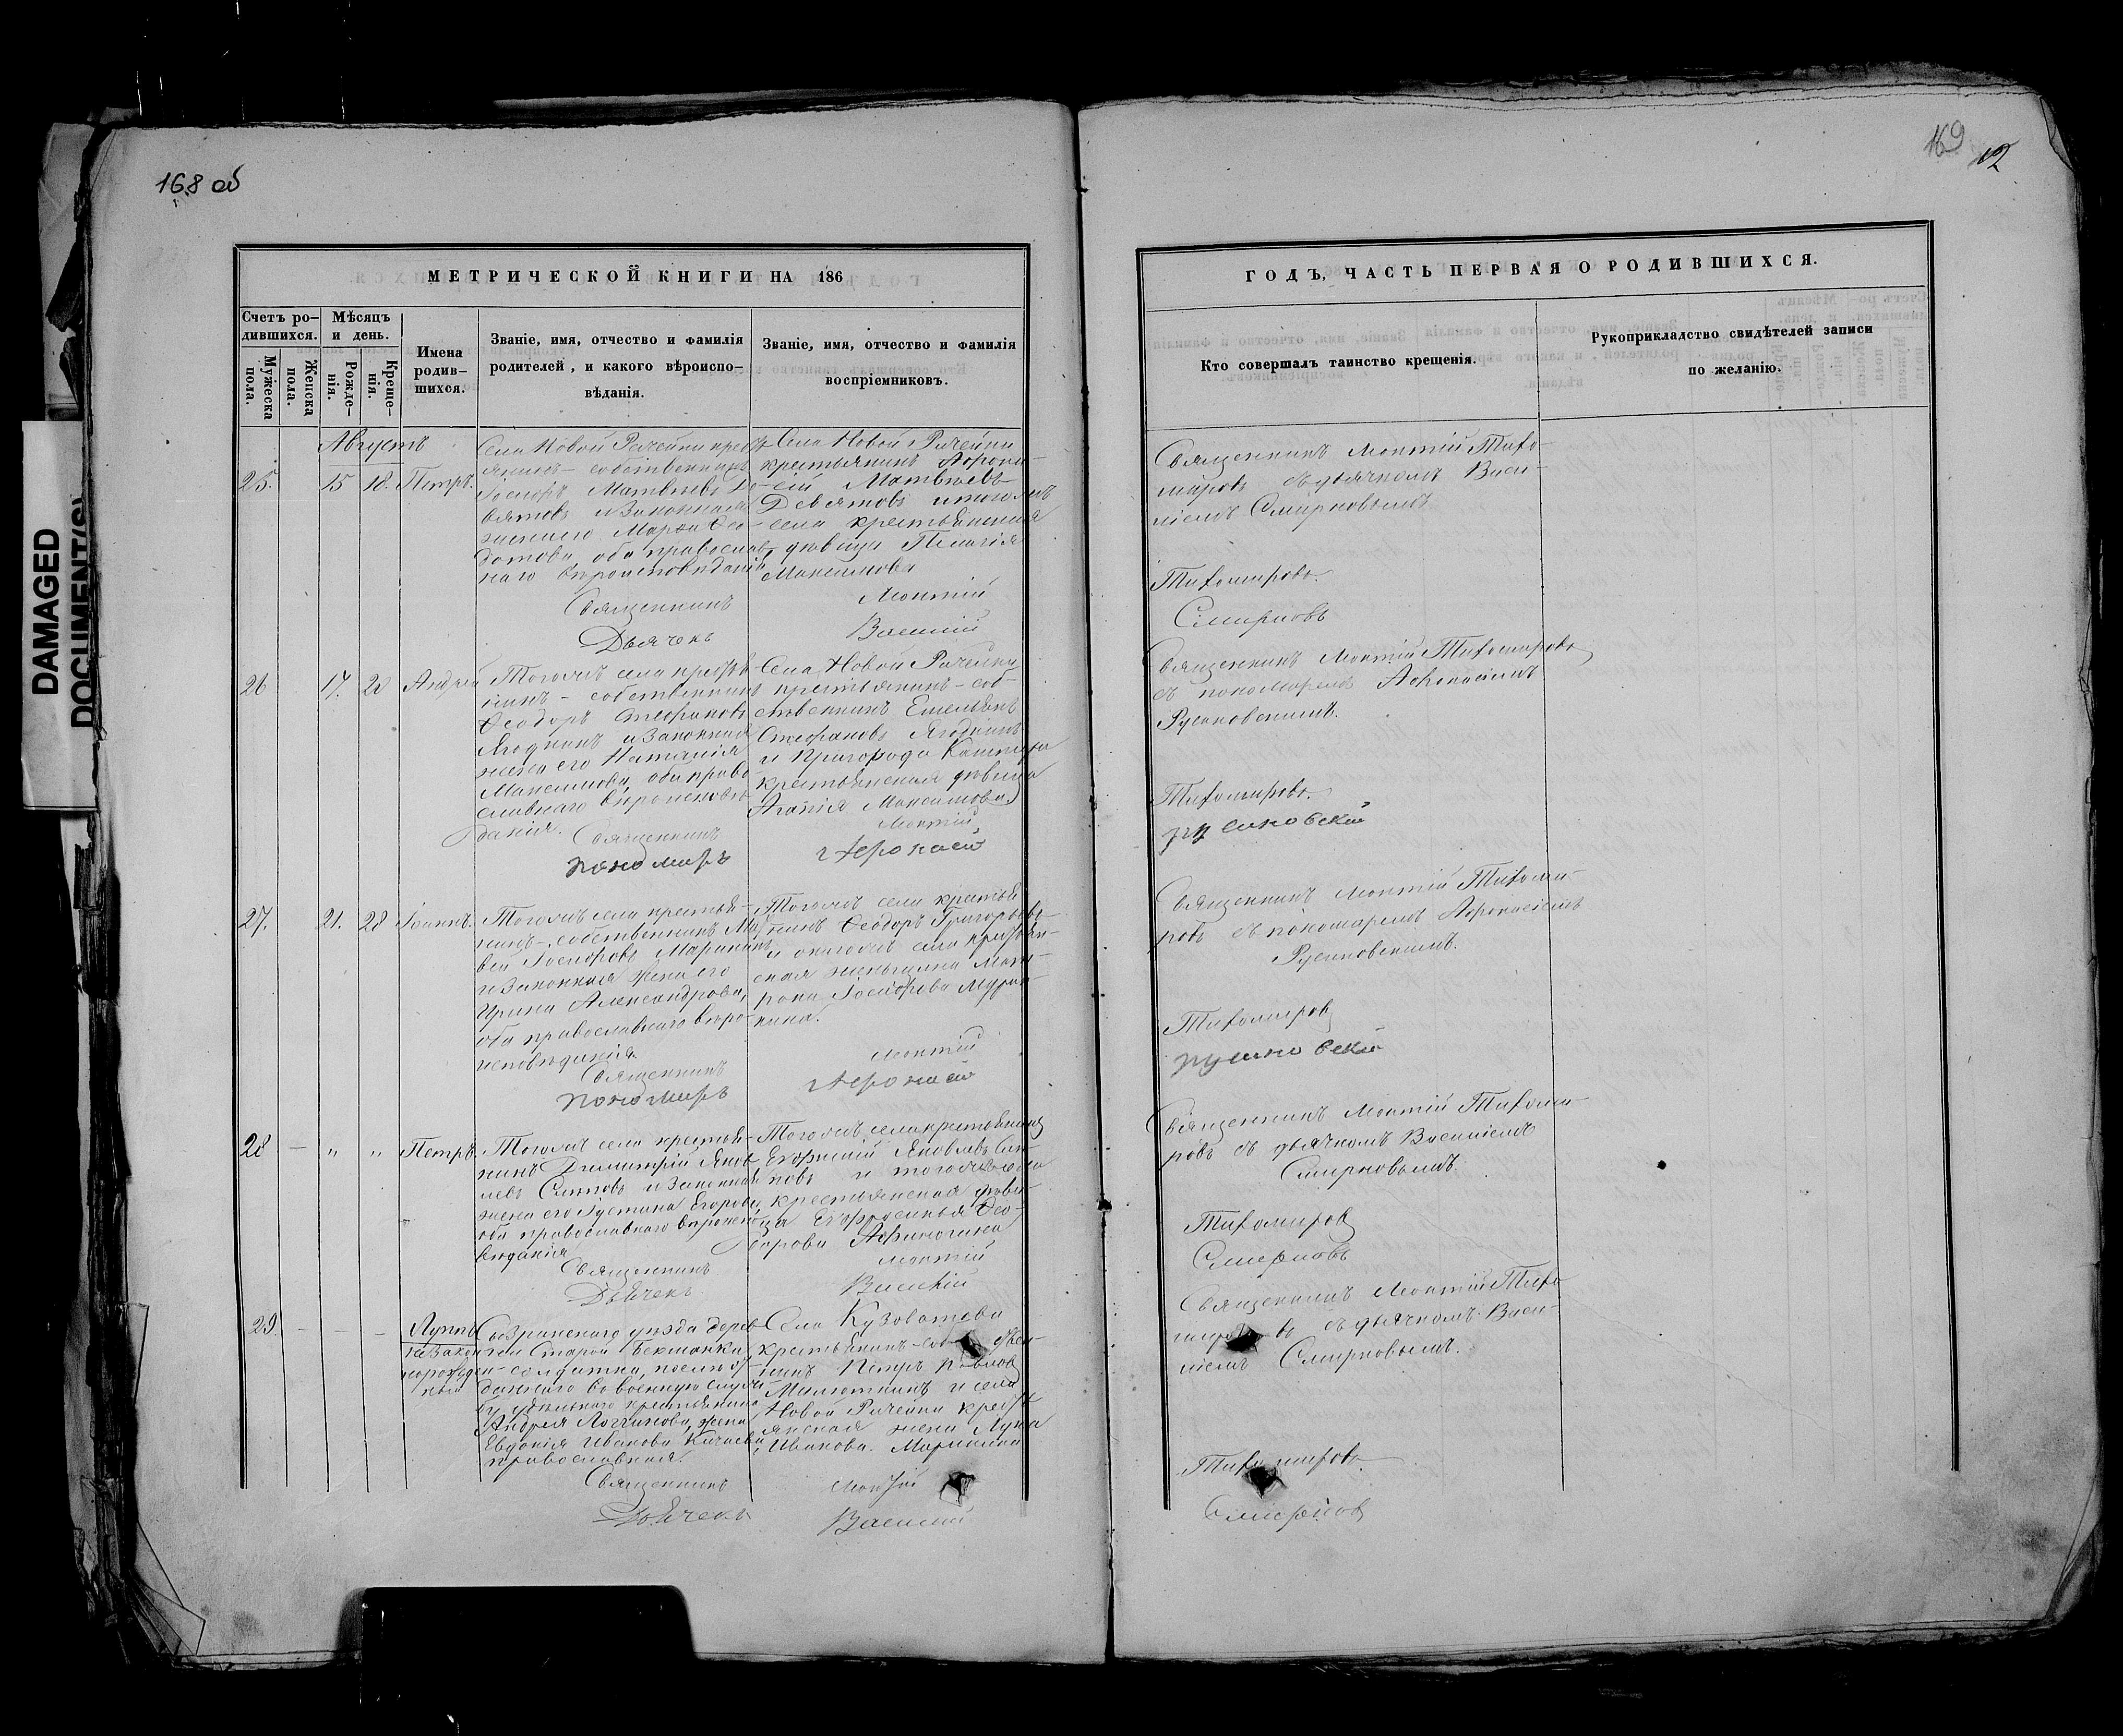 168 об
169
12
DAMAGED
DOCUMENT(S)
МЕТРИЧЕСКОЙ КНИГИ НА 186
Счетъ ро-
дившихся.
Мужеска
пола.
Женска
пола.
Мѣсяцъ
и день.
Рожде-
нія.
Креще-
нія.
Имена
родив-
шихся.
Званіе, имя, отчество и фамилія
родителей, и какого вѣроиспо-
вѣданія.
Званіе, имя, отчество и фамилія
воспріемниковъ.
ГОДЪ, ЧАСТЬ ПЕРВАЯ О РОДИВШИХСЯ.
Кто совершалъ таинство крещенія.
Рукоприкладство свидѣтелей записи
по желанію.
Августъ
25. 15 18. Петръ.
Села Новой Рачейки крест-
янинъ-собственникъ
Матвѣевъ Де-
вятовъ и законная
Ѳео-
дотова, оба православ-
наго вѣроисповѣданія
Священникъ
Дьячекъ
Села Новой Рачейки
крестьянинъ Афона-
сій Матвѣевъ
Девятовъ и тогожъ
села крестьянская
дѣвица Пелагія
Максимова
Монтій
Василій
Священникъ Монтій Тихо-
міровъ съ дьячкомъ Васи-
ліемъ Смирновымъ
Тихоміровъ.
Смирновъ
26 17. 20 Андрей
Тогожъ села крестья-
нинъ-собственникъ
Ѳеодоръ Стефановъ
Ягодкинъ и законная
жена его Наталія
Максимова, оба право-
славнаго вѣроисповѣ-
данія.
Священникъ
пономарь
Села Новой Рачейки
крестьянинъ-соб-
ственникъ Емельянъ
Стефановъ Ягодкинъ
и Пригорода Кашпира
крестьянская дѣвица
Агапія Максимова
Монтій
Афонасій
Священникъ Монтій Тихоміровъ
съ пономаремъ Афонасіемъ
Русановскимъ.
Тихоміровъ.
Русановскій
27. 21. 28 Іоаннъ.
Тогожъ села крестья-
нинъ-собственникъ
и законная жена его
Ирина Александрова,
оба православнаго вѣро-
исповѣданія
Священникъ
пономарь
Тогожъ села крестья-
нинъ Ѳеодоръ Григорьевъ
села крестьян-
ская
Монтій
Афонасій
Священникъ Монтій Тихомі-
ровъ съ пономаремъ Афонасіемъ
Русановскимъ.
Тихоміровъ
Русановскій
28 — " " Петръ.
Тогожъ села крестья-
нинъ Димитрій Яков-
левъ и законная
жена его Іустина Егорова,
оба православнаго вѣроиспо-
вѣданія
Священникъ
Дьячекъ
Тогожъ села крестьянинъ
Яковлевъ
и тогожъ села
крестьянская дѣви-
ца Ефросинья Ѳео-
дорова
Монтій
Василій
Священникъ Монтій Тихомі-
ровъ съ дьячкомъ Василіемъ
Смирновымъ.
Тихоміровъ
Смирновъ
29. — — — Луппъ
незакон
норожден
ный
Сызранскаго уѣзда дерев-
ни Старой Бекшанки
солдатка, послѣ от-
даннаго въ военную служ-
бу удѣльнаго крестьянина
Андрея Логгинова, жена
Евдокія Иванова
православная.
Священникъ
Дьячекъ
Села Кузоватова
крестьянинъ
Петръ Павловъ
Милюткинъ и села
Новой Рачейки крестья-
янская жена
Иванова.
Монтій
Василій
Священникъ Монтій Тихо-
съ дьячкомъ Васи-
ліемъ Смирновымъ.
Тихоміровъ
Смирновъ